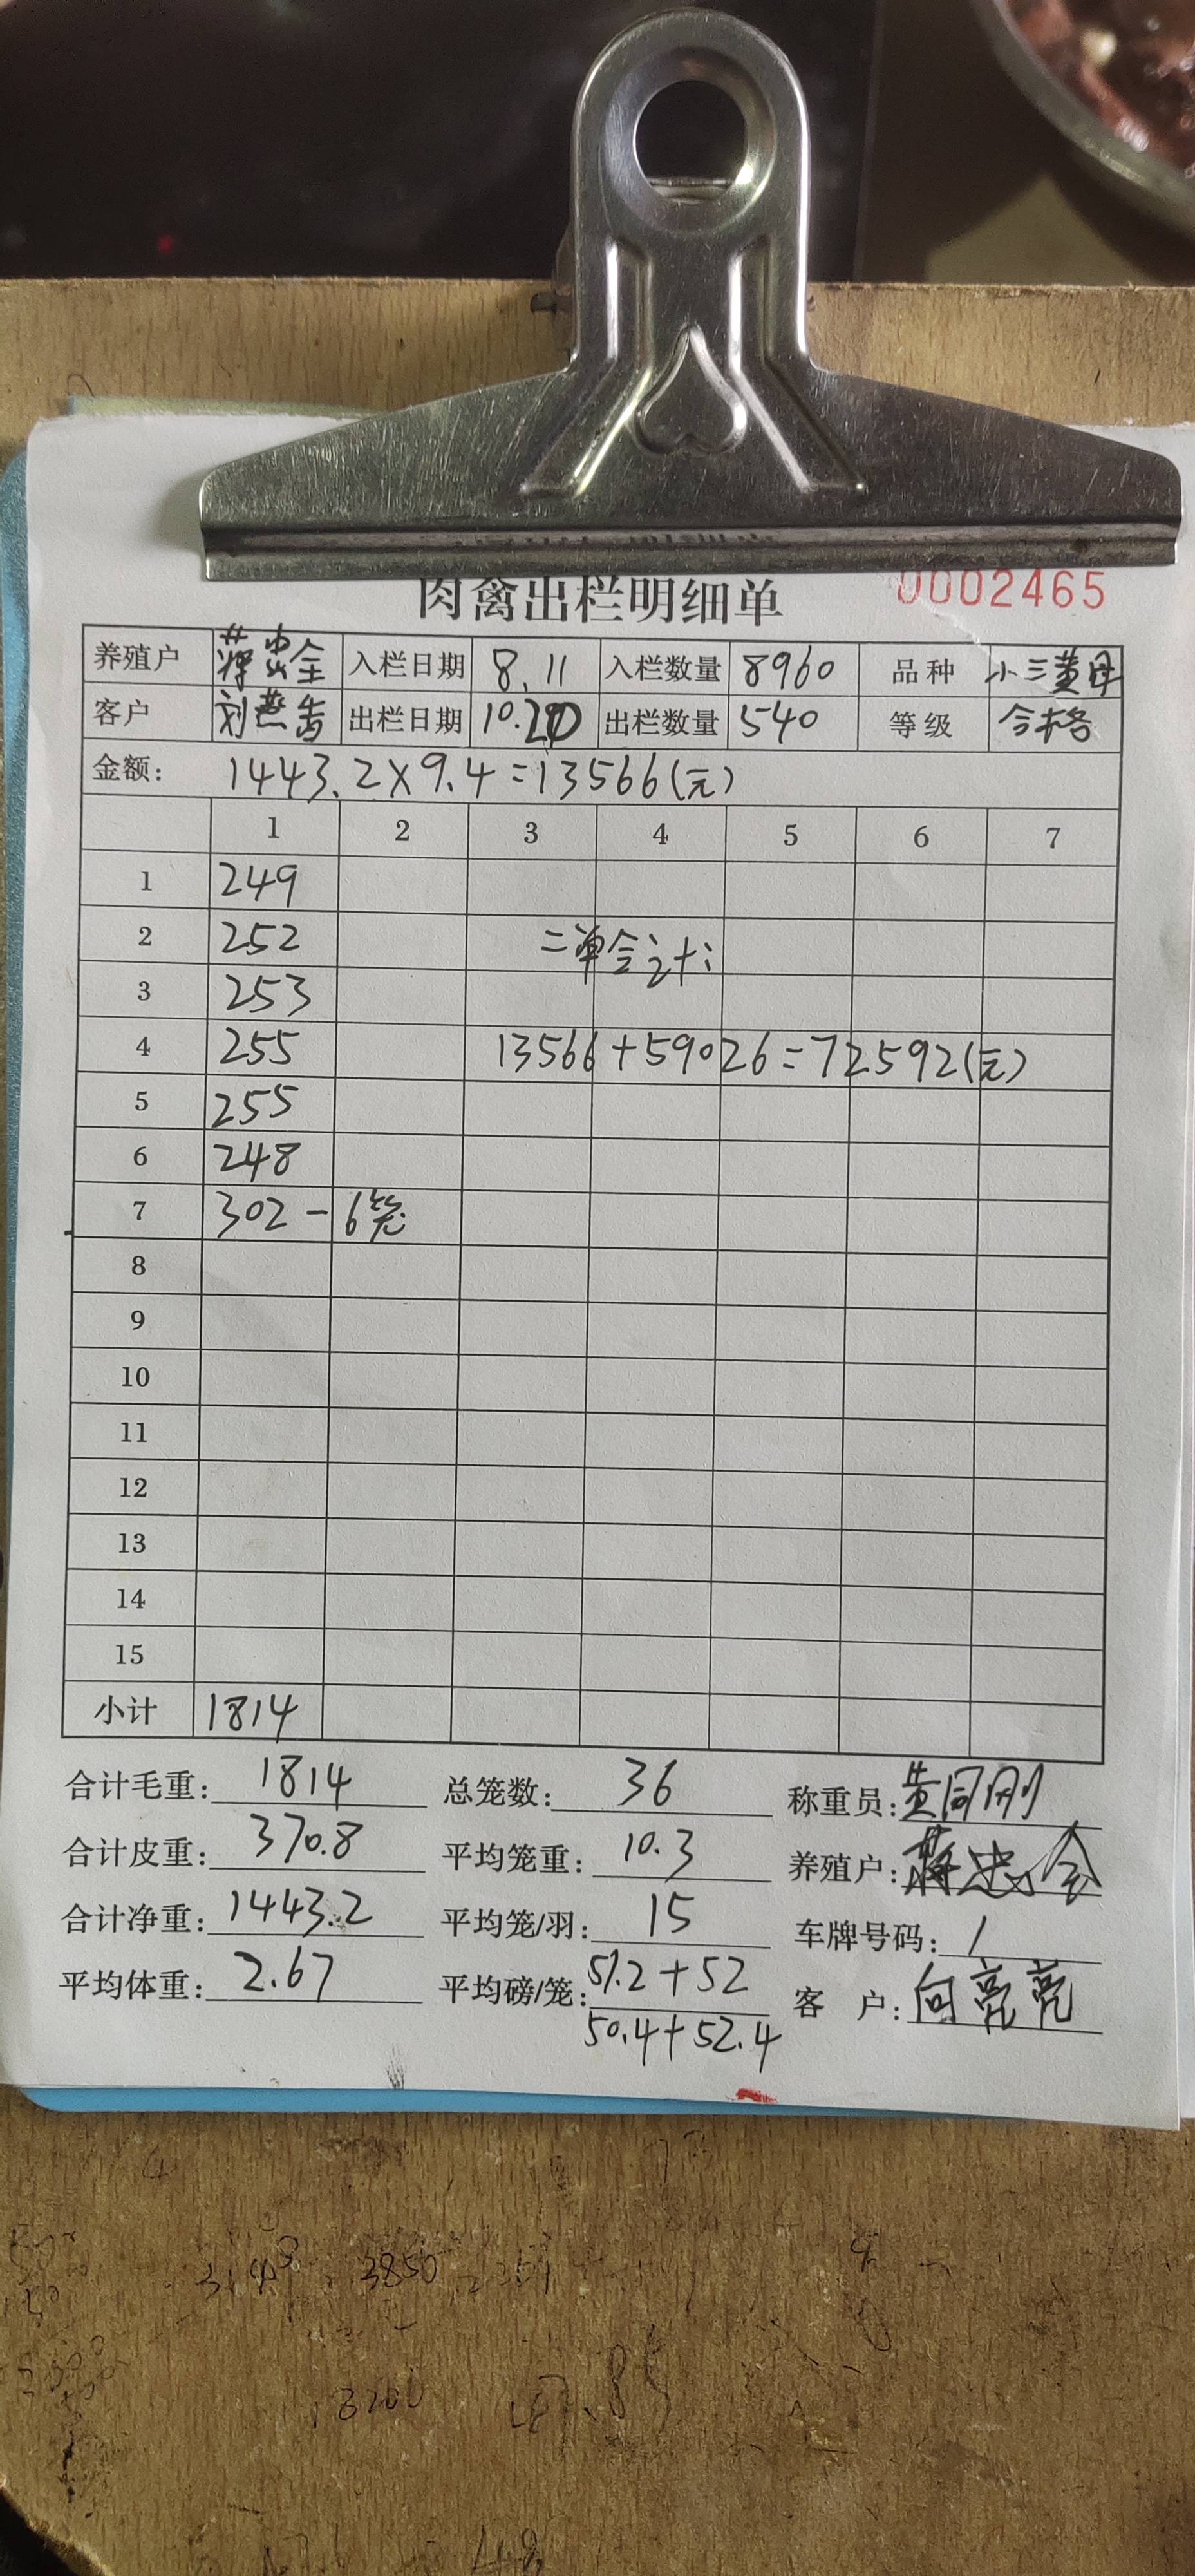 肉禽出栏明细单 0002465
养殖户 蒋忠全 入栏日期 8.11 入栏数量 8960 品种 小三黄母
客户 刘燕香 出栏日期 10.20 出栏数量 540 等级 合格
金额: 1443.2×9.4=13566(元)
1 2 3 4 5 6 7
1 249
2 252 二单合计:
3 253
4 255 13566+59026=72592(元)
5 255
6 248
7 302-6笼
8
9
10
11
12
13
14
15
小计 1814
合计毛重: 1814 总笼数: 36 称重员: 黄同刚
合计皮重: 370.8 平均笼重: 10.3 养殖户: 蒋忠全
合计净重: 1443.2 平均笼/羽: 15 车牌号码: /
平均体重: 2.67 平均磅/笼: 51.2+52 客 户: 向亮亮
50.4+52.4
3850